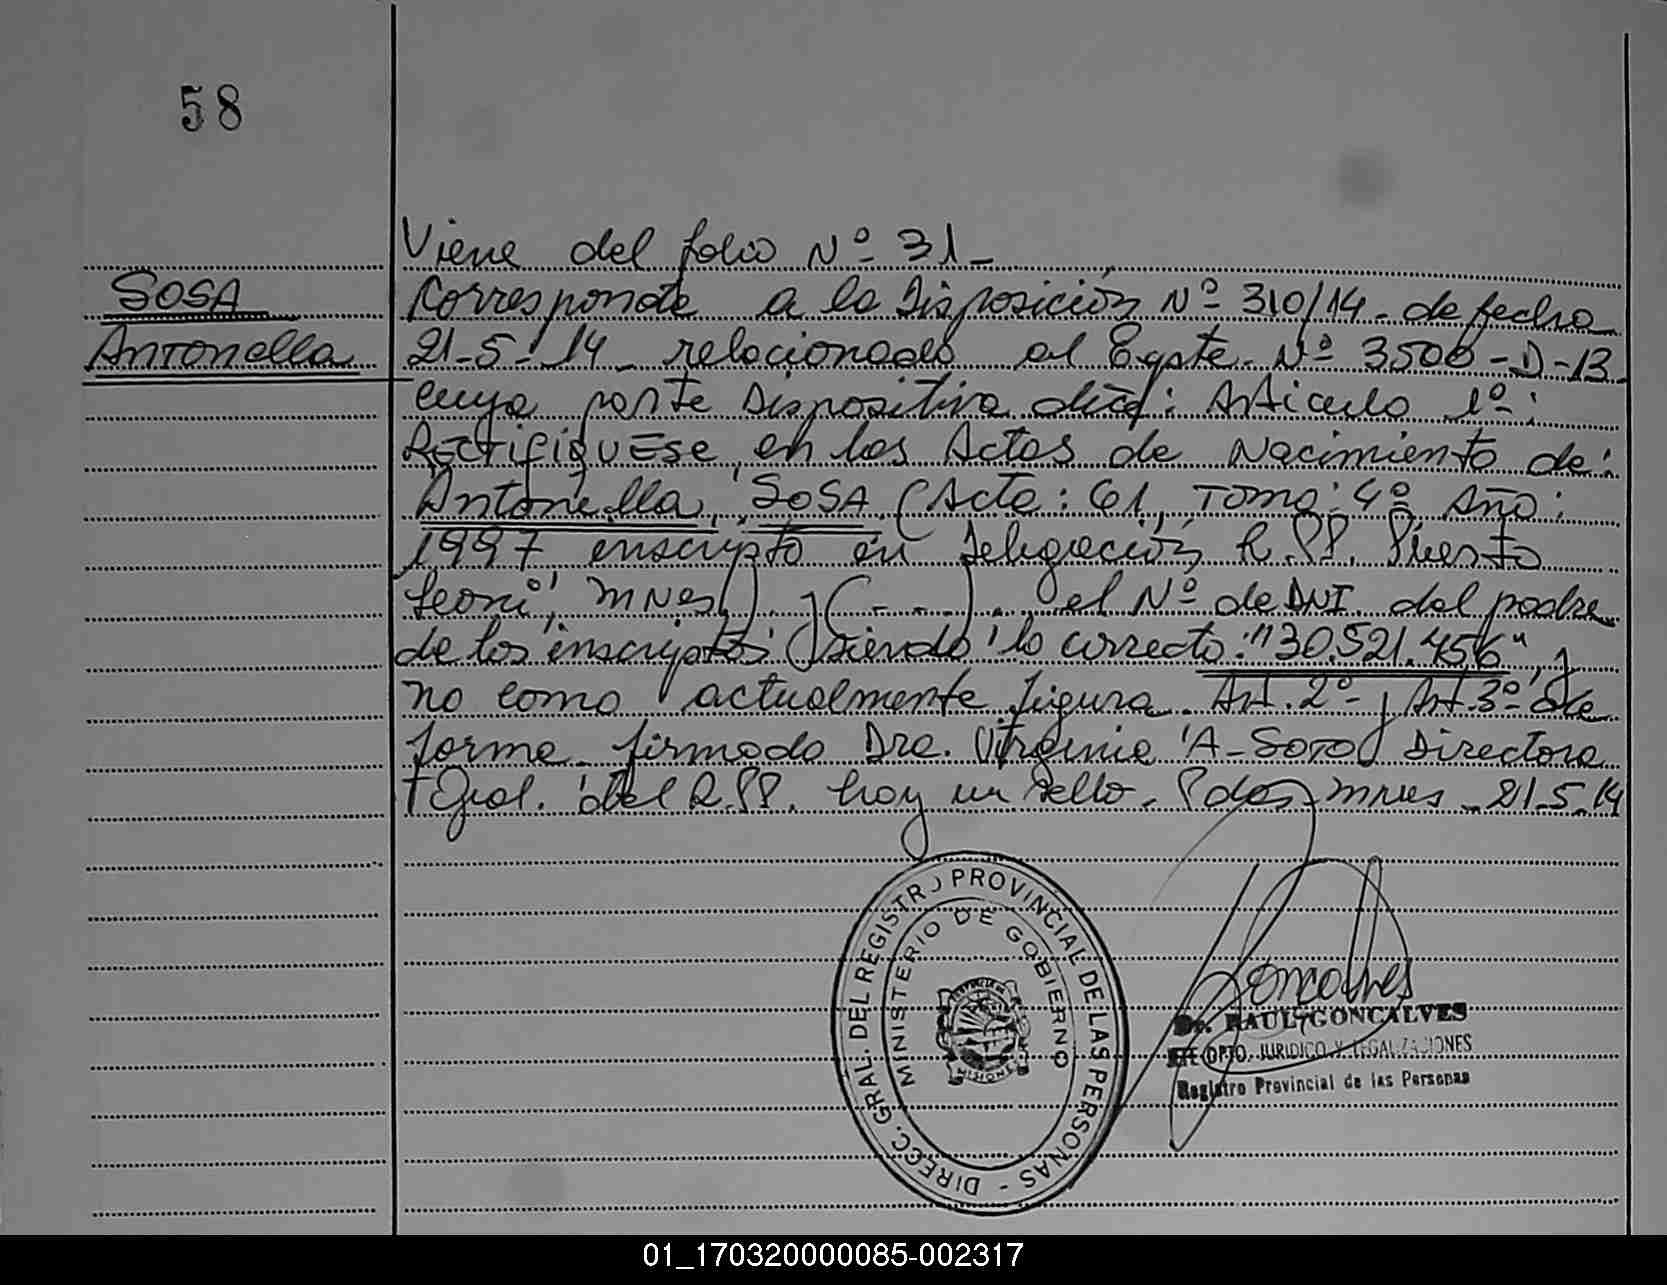 58
Viene del folio Nº 31_
SOSA
Antonella
Corresponde a la Disposición Nº 310/14 - de fecha
21-5-14 - relacionado al Expte. Nº 3500-D-13
cuya parte Dispositiva dice: Artículo 1º:
Rectifíquese en las Actas de Nacimiento de:
Antonella SOSA (Acta: 61, Tomo: 4º Año:
1997 inscripto en Delegación R.PP. Puerto
Leoni, Mnes). y (- - -). el Nº de DNI. del padre
de los inscriptos siendo lo correcto: "30.521.456", y
no como actualmente figura. Art. 2º y Art. 3º de
forma. firmado Dra. Virginia A-Soto Directora
Gral. del R.PP. hay un sello. Pdas, Mnes - 21-5-14
DIRECC. GRAL. DEL REGISTRO PROVINCIAL DE LAS PERSONAS -
MINISTERIO DE GOBIERNO
MISIONES
Goncalves
Dr. RAUL GONCALVES
JEFE DPTO. JURIDICO Y LEGALIZACIONES
Registro Provincial de las Personas
01_170320000085-002317